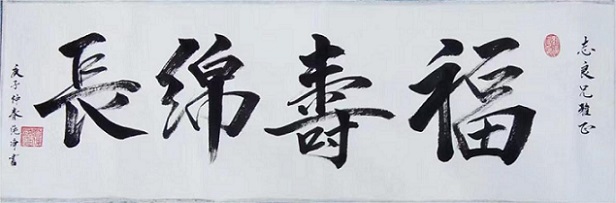 志良兄雅正
福壽綿長
庚子仲春